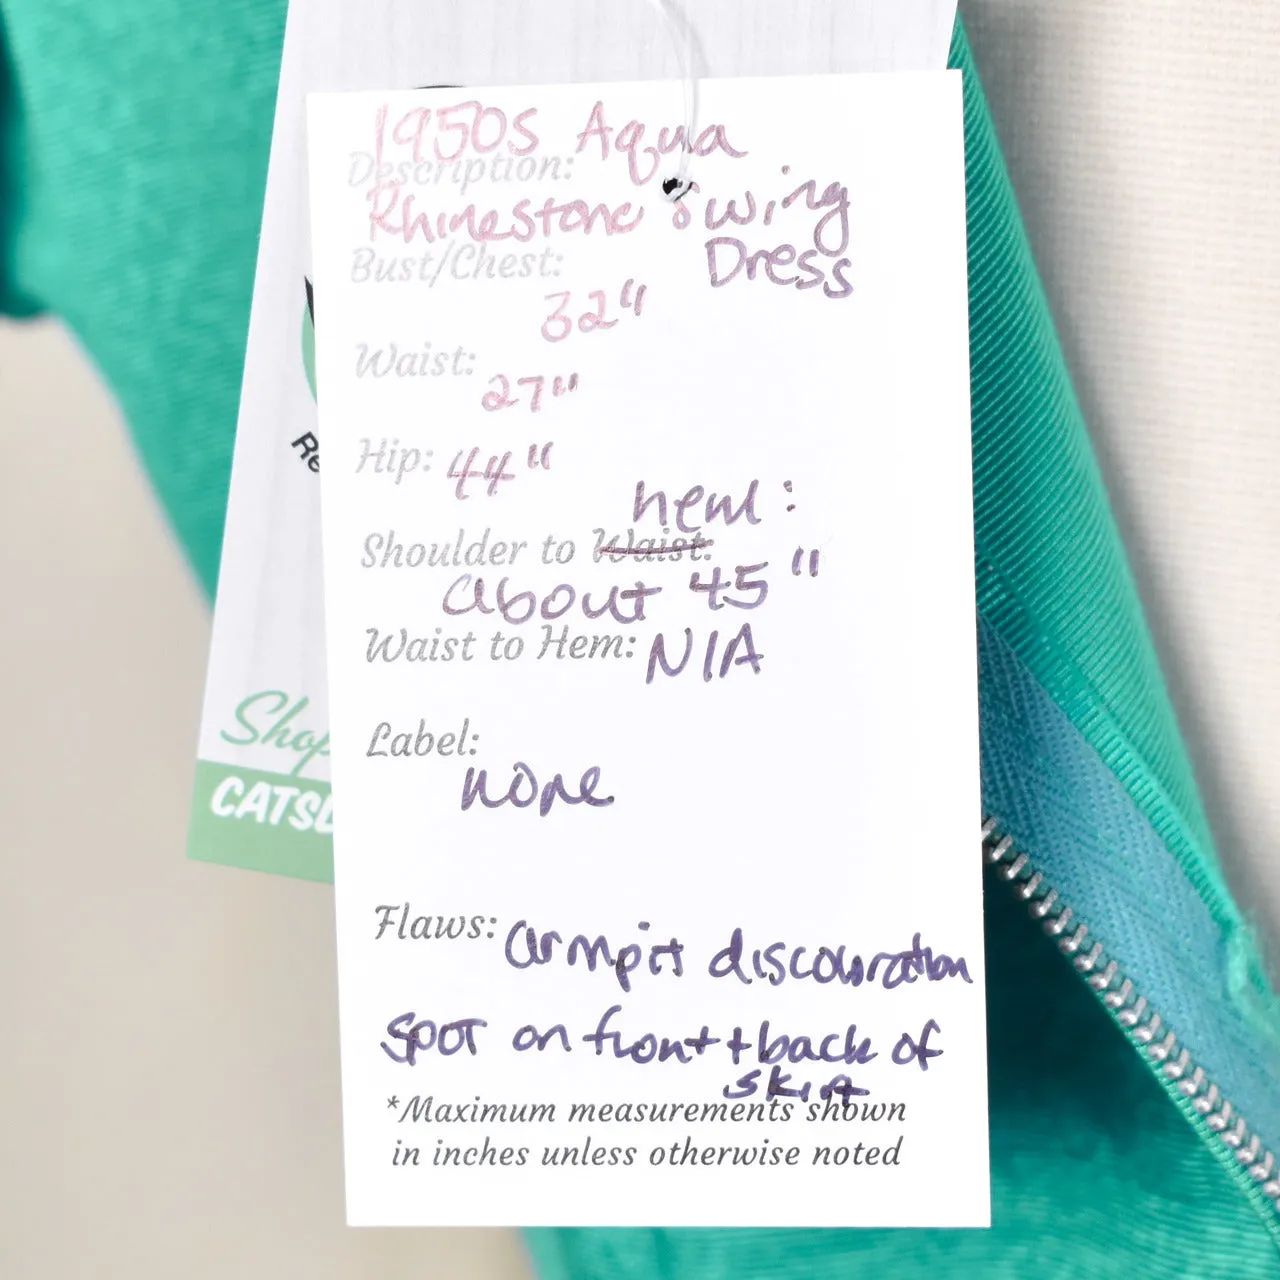 1950s Aqua
Description:
Rhinestone Swing
Dress
Bust/Chest:
32"
Waist:
27"
Hip: 44"
hem:
Shoulder to Waist:
about 45"
Waist to Hem: N/A
Label:
none
Flaws: armpit discolouration
spot on front + back of
skirt
*Maximum measurements shown
in inches unless otherwise noted
Re
Shop
CATSL